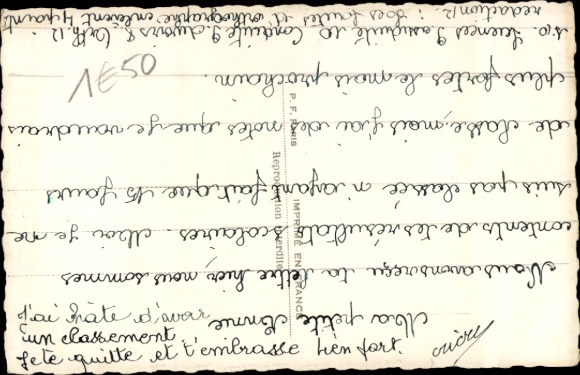 Ma petite Anne
Nous avons reçu ta lettre hier, nous sommes
contents de tes résultats scolaires Moi je ne
suis pas classée n'ayant fait que 15 jours
de classe, mais j'ai des notes que je voudrais
plus fortes le mois prochain.
Sciences 9 assiduité 10 Conduite 9 devoirs 8 Orth. 12
rédaction 12 : des fautes d'orthographe enlèvent 4 points
j'ai hâte d'avoir
un classement.
Je te quitte et t'embrasse bien fort
1€50
P. F. PARIS
Reproduction interdite
IMPRIMÉ EN FRANCE